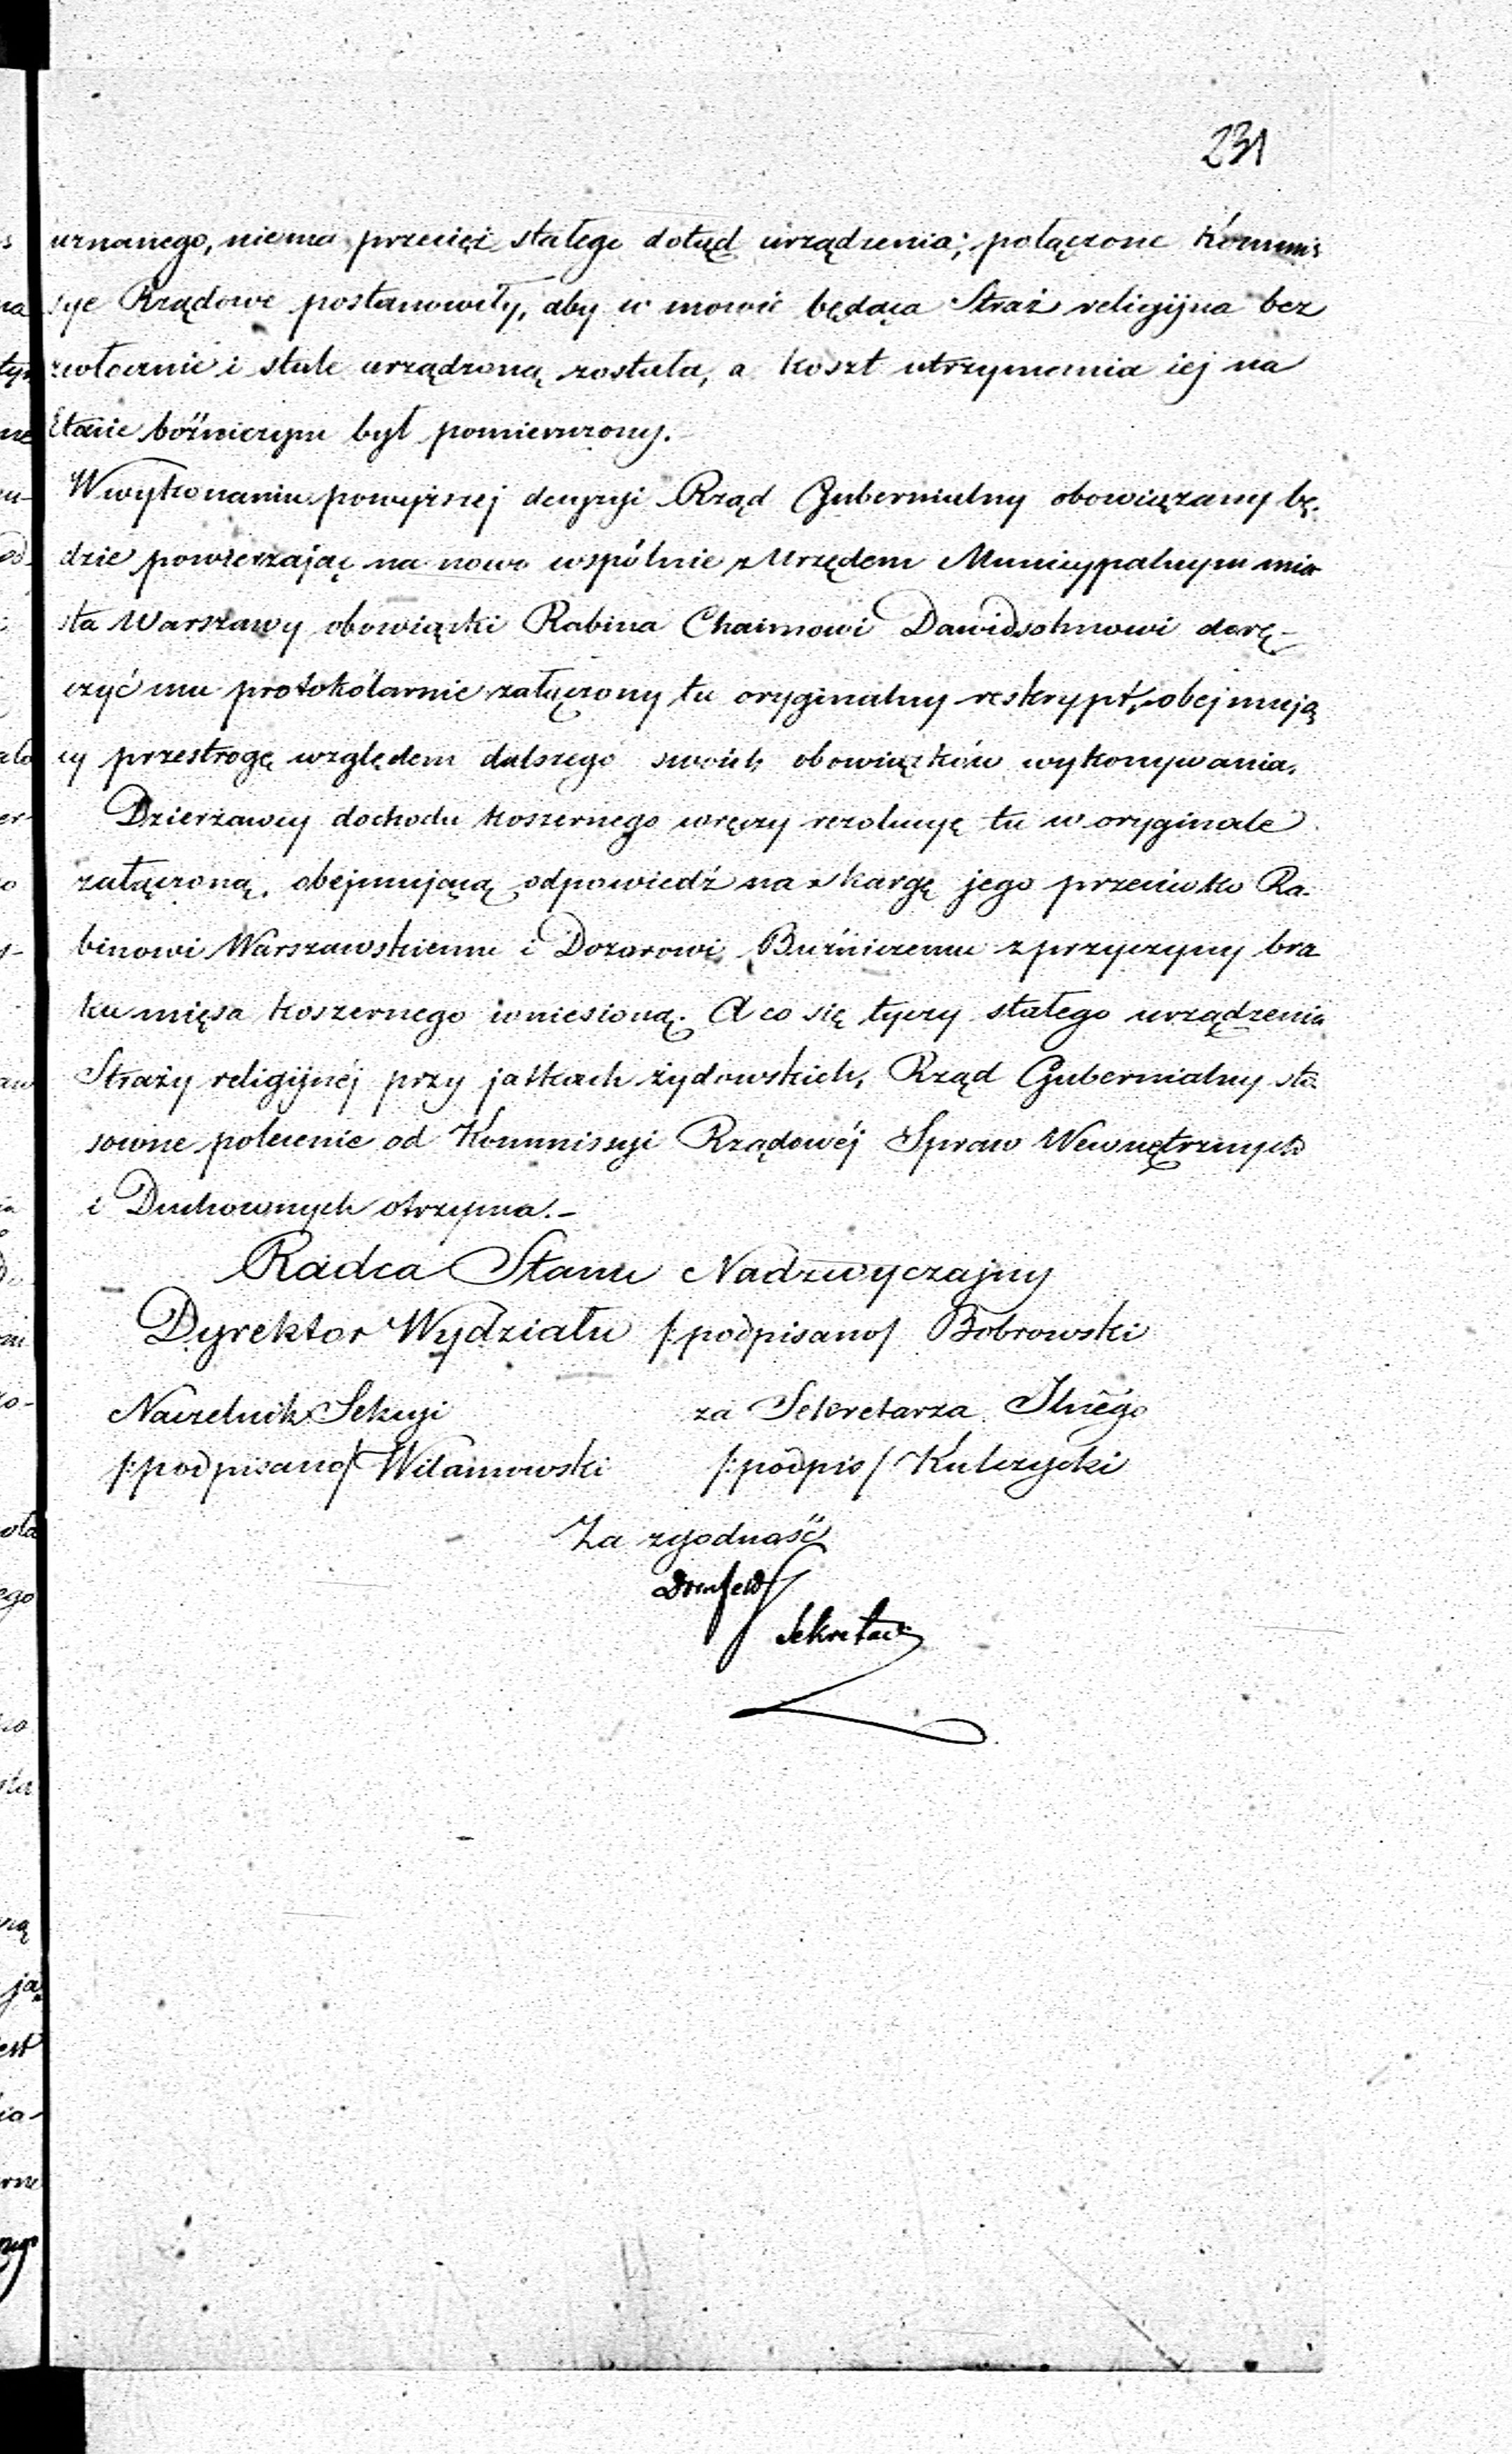 231
uznanego, niema przecięż stałego dotąd urządzenia; połączone Kommis
sye Rządowe postanowiły, aby w mowie będąca Straż religijna bez
zwłocznie i stale urządzoną została, a koszt utrzymania iej na
Etacie bóżniczym był pomieszczony.
W wykonaniu powyższej decyzyi Rząd Gubernialny obowiązany bę-
dzie powierzając na nowo wspólnie z Urzędem Municypalnym mia
sta Warszawy obowiązki Rabina Chaimowi Dawidsohnowi dorę-
czyć mu protokólarnie załączony tu oryginalny reskrypt, obejmują
cy przestrogę względem dalszego swoich obowiązków wykonywania.
Dzierżawcy dochodu koszernego wręczy rezolucyę tu w oryginale
załączoną, obejmującą odpowiedź na skargę jego przeciwko Ra-
binowi Warszawskiemu i Dozorowi Bużniczemu z przyczyny bra
ku mięsa koszernego wniesioną. A co się tyczy stałego urządzenia
Straży religijnéj przy jatkach żydowskich, Rząd Gubernialny sto
sowne polecenie od Kommissyi Rządowéj Spraw Wewnętrznych
i Duchownych otrzyma.-
Radca Stanu Nadzwyczajny
Dyrektor Wydziału /:podpisano/ Bobrowski
Naczelnik Sekcyi za Sekretarza Jlnego
/:podpisano/ Wilanowski /:podpis/ Kulczycki
Za zgodność
Sekretarz